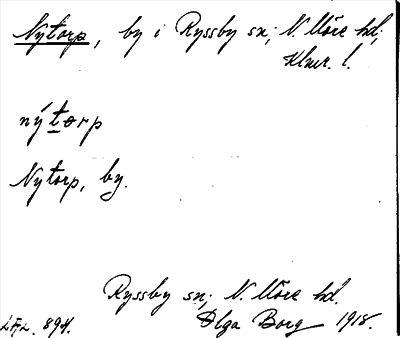 Nytorp, by i Ryssby sn; N. Möre hd;
Klmr. l.
nýtorp
Nytorp, by.
Ryssby sn; N. Möre hd.
LAL. 894. Olga Borg 1918.